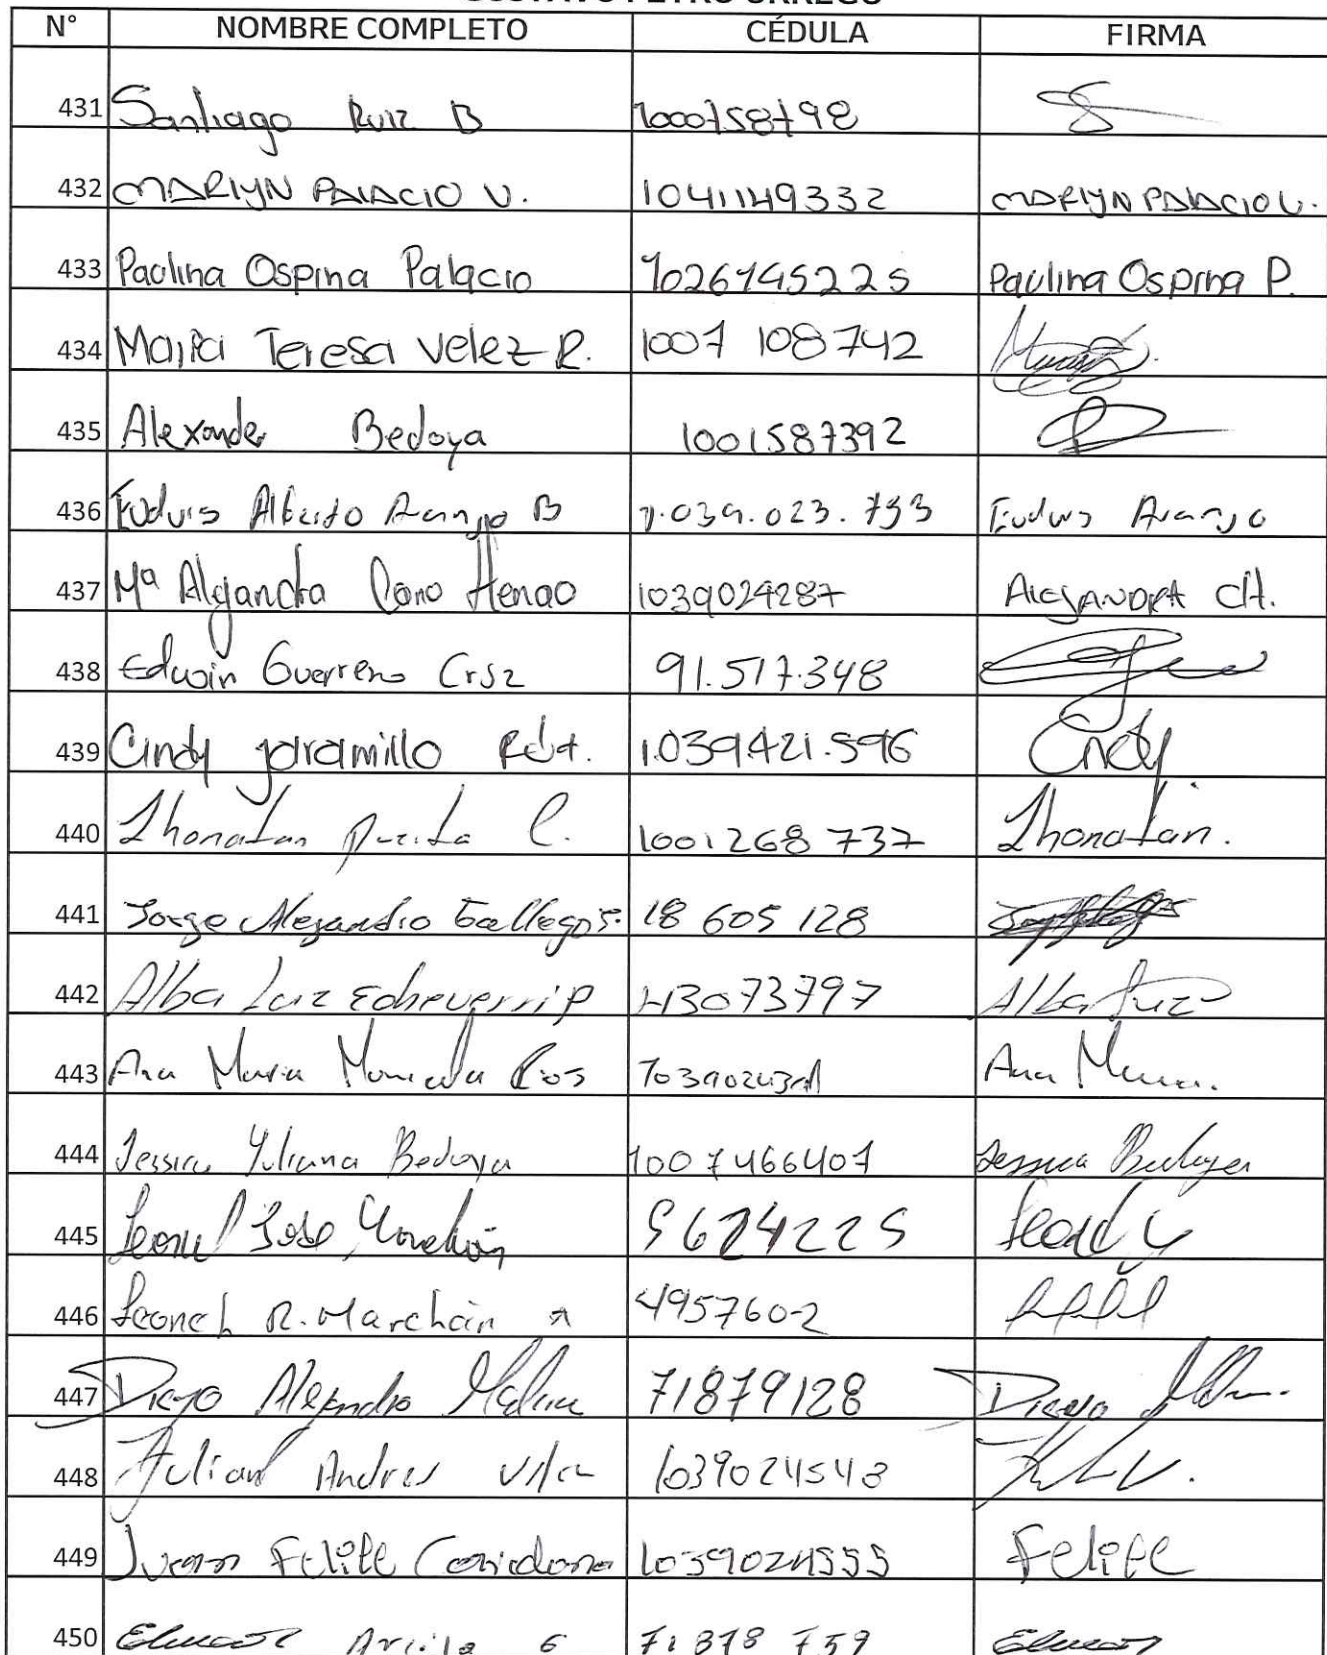 N° NOMBRE COMPLETO CÉDULA FIRMA
431 Santiago Ruiz B 1000758798
432 MARIYN PALACIO V. 1041149332 MARIYN PALACIO V.
433 Paulina Ospina Palacio 1026145225 Paulina Ospina P.
434 Maria Teresa Velez R. 1007 108742
435 Alexander Bedoya 1001587392
436 Alberto Arango B 1.039.023.793 Arango
437 Mª Alejandra Cano Henao 1039024287 ALEJANDRA CH.
438 Edwin Guerrero 91.517.348
439 Cindy jaramillo 1.039.421.596 Cindy
440 Jhonatan C. 1001268 737 Jhonatan.
441 Jorge Alejandro Gallego 18 605 128
442 Alba Luz Echeverri P 43073797 Alba Luz
443 Ana Maria Ana
444 Jessica Yuliana Bedoya 1007466407 Jessica Bedoya
445 Jose 5624225
446 R. Marchán 4957602
447 Diego Alejandro 71879128 Diego
448 Julian Andres 1039024543
449 Juan Felipe 1039024555 Felipe
450 71 878 759